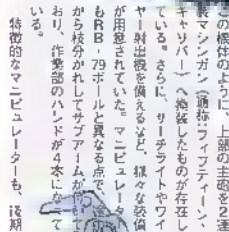 の機体のように、上部の主砲を2連
装マシンガン(通称:フィフティーン・
キャリバー)へ換装したものが存在し
ている。さらに、サーチライトやワイ
ヤー射出機を備えるなど、様々な装備
が用意されていた。マニピュレーター
もRB-79ボールと異なる点で、左右
から枝分かれしてサブアームが付いて
おり、作業部のハンドが4本になって
いる。
特徴的なマニピュレーターも、後期